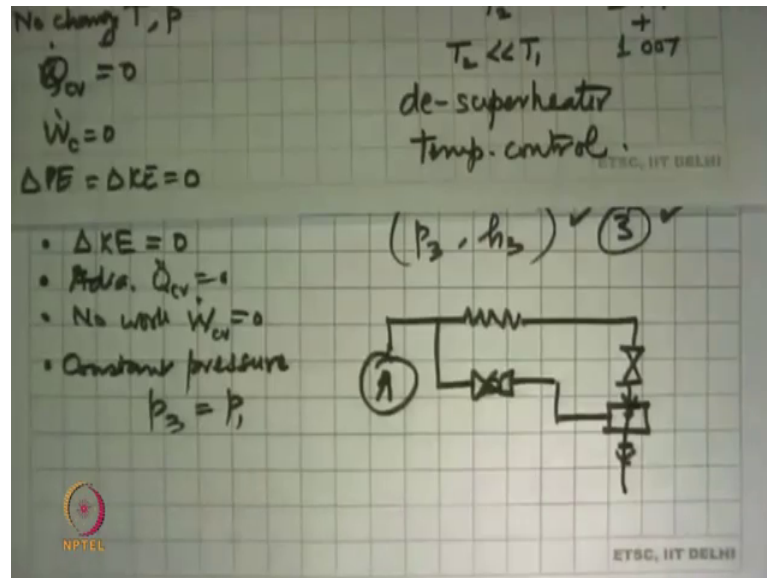 No change T, P
Q̇cv = 0
Ẇc = 0
ΔPE = ΔKE = 0
T2
+
T2 << T1 1007
de-superheater
Temp. control.
ETSC, IIT DELHI
• ΔKE = 0
• Adia. Q̇cv = 0
• No work Ẇcv = 0
• Constant pressure
p3 = p1
(p3, h3) ✓ 3 ✓
1
NPTEL
ETSC, IIT DELHI